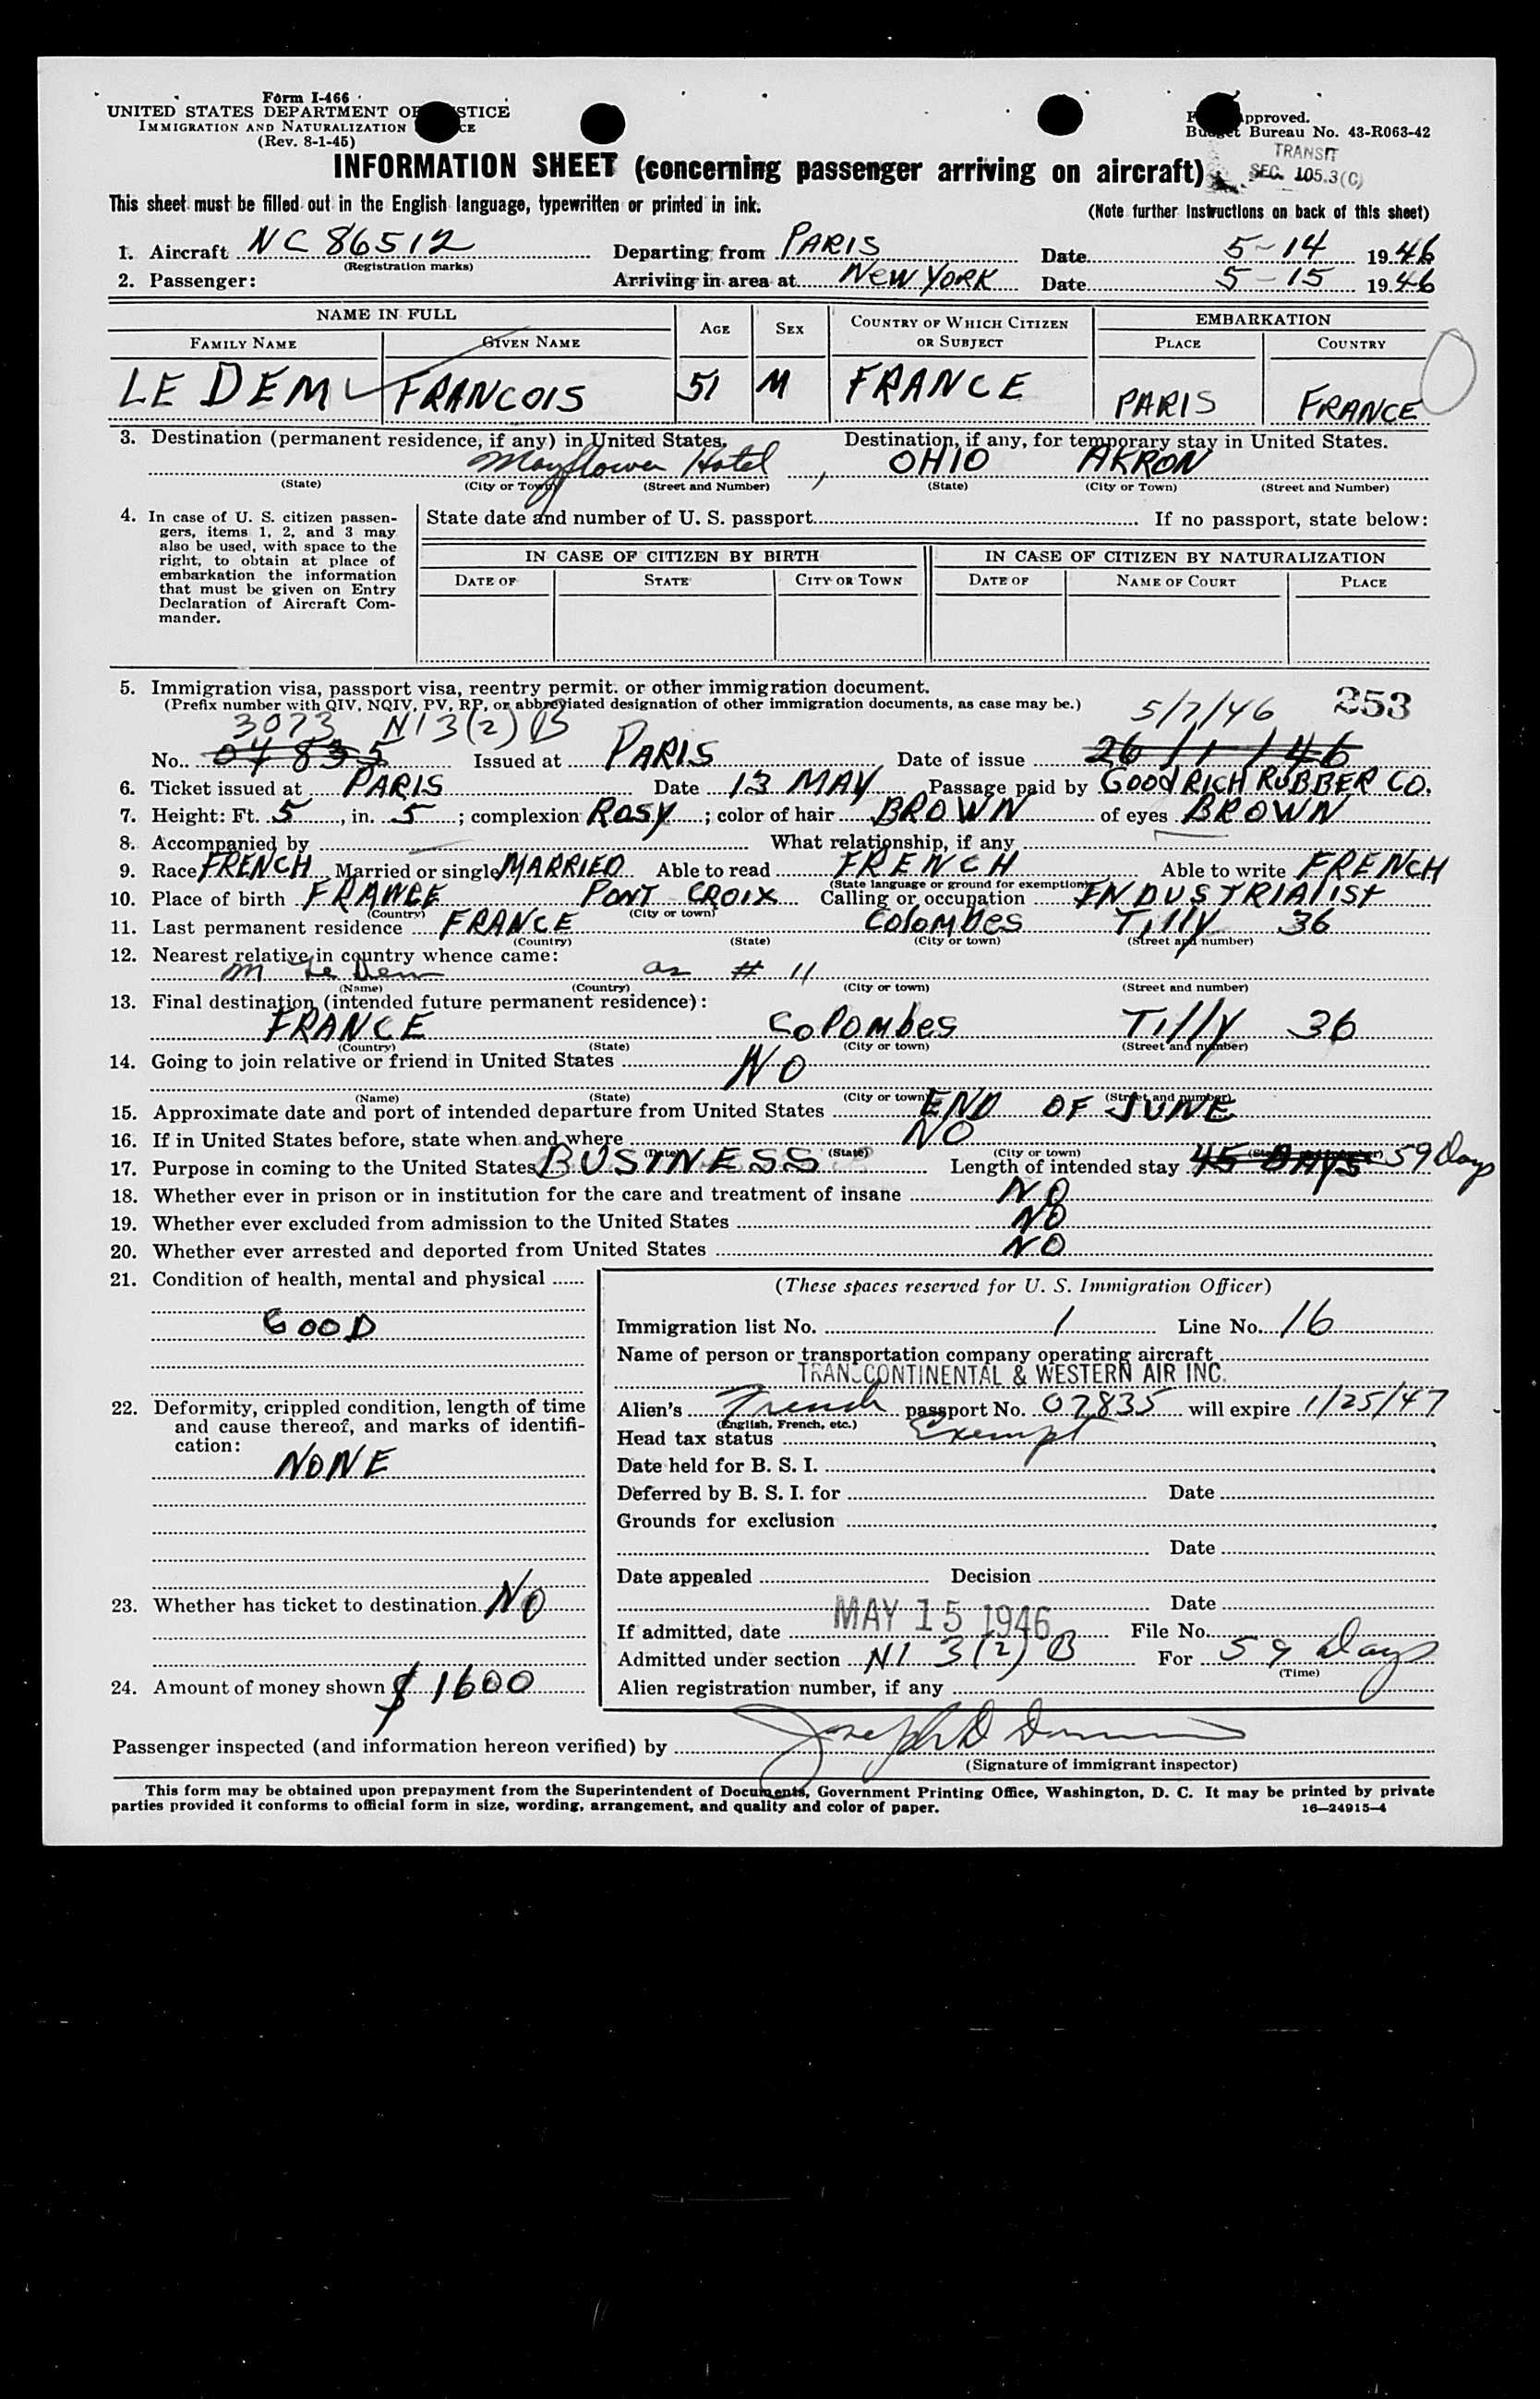 Form I-466
UNITED STATES DEPARTMENT OF JUSTICE
IMMIGRATION AND NATURALIZATION SERVICE
(Rev. 8-1-45)
Form Approved.
Budget Bureau No. 43-R063-42
TRANSIT
SEC. 105.3(C)
INFORMATION SHEET (concerning passenger arriving on aircraft)
This sheet must be filled out in the English language, typewritten or printed in ink.
(Note further instructions on back of this sheet)
1. Aircraft NC 86512 Departing from PARIS Date 5-14 1946
(Registration marks)
2. Passenger: Arriving in area at NEW YORK Date 5-15 1946
NAME IN FULL AGE SEX COUNTRY OF WHICH CITIZEN OR SUBJECT EMBARKATION
FAMILY NAME GIVEN NAME PLACE COUNTRY
LE DEM FRANCOIS 51 M FRANCE PARIS FRANCE
3. Destination (permanent residence, if any) in United States. Destination, if any, for temporary stay in United States.
Mayflower Hotel, OHIO AKRON
(State) (City or Town) (Street and Number) (State) (City or Town) (Street and Number)
4. In case of U. S. citizen passengers, items 1, 2, and 3 may also be used, with space to the right, to obtain at place of embarkation the information that must be given on Entry Declaration of Aircraft Commander.
State date and number of U. S. passport If no passport, state below:
IN CASE OF CITIZEN BY BIRTH IN CASE OF CITIZEN BY NATURALIZATION
DATE OF STATE CITY OR TOWN DATE OF NAME OF COURT PLACE
5. Immigration visa, passport visa, reentry permit. or other immigration document.
(Prefix number with QIV, NQIV, PV, RP, or abbreviated designation of other immigration documents, as case may be.)
253
3073 NI 3(2) B 5/7/46
No. 07835 Issued at PARIS Date of issue 26/1/46
6. Ticket issued at PARIS Date 13 MAY Passage paid by GOODRICH RUBBER CO.
7. Height: Ft. 5, in. 5; complexion ROSY; color of hair BROWN of eyes BROWN
8. Accompanied by — What relationship, if any —
9. Race FRENCH Married or single MARRIED Able to read FRENCH Able to write FRENCH
(State language or ground for exemption)
10. Place of birth FRANCE PONT CROIX Calling or occupation INDUSTRIALIST
(Country) (City or town)
11. Last permanent residence FRANCE Colombes Tilly 36
(Country) (State) (City or town) (Street and number)
12. Nearest relative in country whence came:
M Le Dem as # 11
(Name) (Country) (City or town) (Street and number)
13. Final destination (intended future permanent residence):
FRANCE Colombes Tilly 36
(Country) (State) (City or town) (Street and number)
14. Going to join relative or friend in United States NO
(Name) (State) (City or town) (Street and number)
15. Approximate date and port of intended departure from United States END OF JUNE
16. If in United States before, state when and where NO
(Date) (State) (City or town) (Street and number)
17. Purpose in coming to the United States BUSINESS Length of intended stay 45 DAYS 59 Days
18. Whether ever in prison or in institution for the care and treatment of insane NO
19. Whether ever excluded from admission to the United States NO
20. Whether ever arrested and deported from United States NO
21. Condition of health, mental and physical
GOOD
22. Deformity, crippled condition, length of time and cause thereof, and marks of identification:
NONE
23. Whether has ticket to destination NO
24. Amount of money shown $ 1600
(These spaces reserved for U. S. Immigration Officer)
Immigration list No. 1 Line No. 16
Name of person or transportation company operating aircraft
TRANSCONTINENTAL & WESTERN AIR INC.
Alien's French passport No. 07835 will expire 1/25/47
(English, French, etc.)
Head tax status Exempt
Date held for B. S. I.
Deferred by B. S. I. for Date
Grounds for exclusion
Date
Date appealed Decision
Date
If admitted, date MAY 15 1946 File No.
Admitted under section NI 3(2) B For 59 Days
(Time)
Alien registration number, if any
Passenger inspected (and information hereon verified) by Joseph D
(Signature of immigrant inspector)
This form may be obtained upon prepayment from the Superintendent of Documents, Government Printing Office, Washington, D. C. It may be printed by private
parties provided it conforms to official form in size, wording, arrangement, and quality and color of paper.
16—24915-4